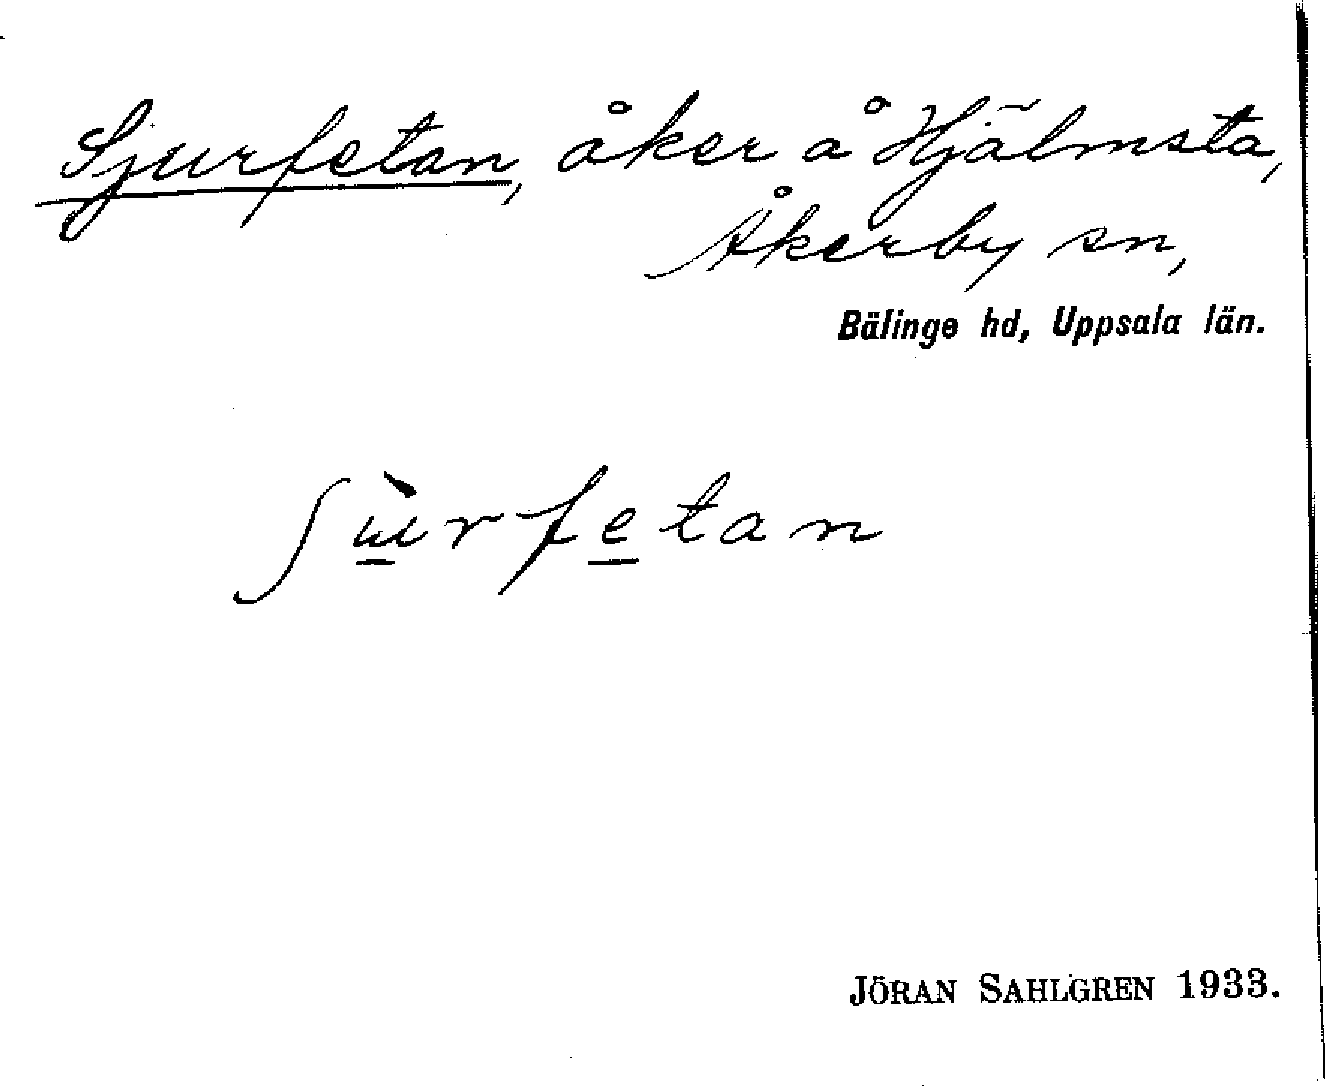 Sjurfetan, åker å Hjälmsta,
Åkerby sn,
Bälinge hd, Uppsala län.
ʃù̱rfe̱tan
JÖRAN SAHLGREN 1933.